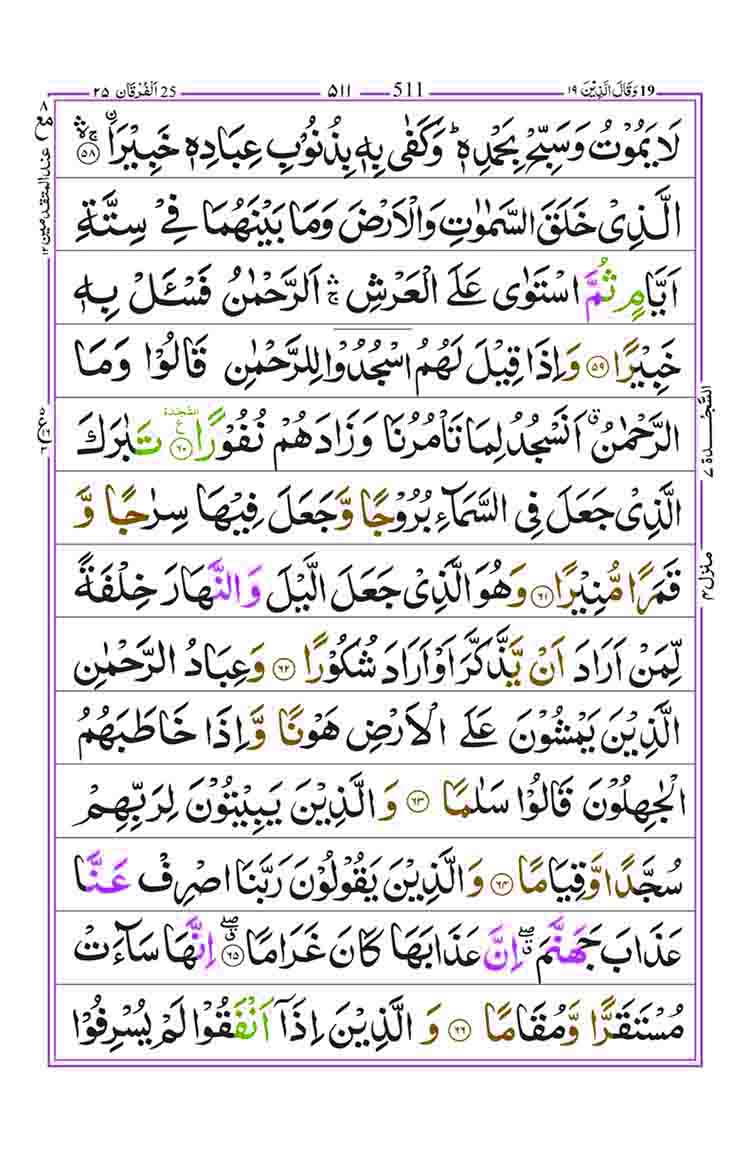 19 وَقَالَ الَّذِیْنَ ١٩ 511 ٥١١ 25 اَلْفُرْقَان ٢٥
لَا یَمُوْتُ وَسَبِّحْ بِحَمْدِهٖ ؕ وَكَفٰی بِهٖ بِذُنُوْبِ عِبَادِهٖ خَبِیْرَا ۟ۙۚۛ ﴿۵۸﴾
الَّذِیْ خَلَقَ السَّمٰوٰتِ وَالْاَرْضَ وَمَا بَیْنَهُمَا فِیْ سِتَّةِ
اَیَّامٍ ثُمَّ اسْتَوٰی عَلَی الْعَرْشِ ۚۛ اَلرَّحْمٰنُ فَسْـَٔلْ بِهٖ
خَبِیْرًا ﴿۵۹﴾ وَاِذَا قِیْلَ لَهُمُ اسْجُدُوْا لِلرَّحْمٰنِ قَالُوْا وَمَا
الرَّحْمٰنُ ۗ اَنَسْجُدُ لِمَا تَاْمُرُنَا وَزَادَهُمْ نُفُوْرًا ﴿۶۰﴾ السَّجْدَة ع تَبٰرَكَ
الَّذِیْ جَعَلَ فِی السَّمَآءِ بُرُوْجًا وَّجَعَلَ فِیْهَا سِرٰجًا وَّ
قَمَرًا مُّنِیْرًا ﴿۶۱﴾ وَهُوَ الَّذِیْ جَعَلَ الَّیْلَ وَالنَّهَارَ خِلْفَةً
لِّمَنْ اَرَادَ اَنْ یَّذَّكَّرَ اَوْ اَرَادَ شُكُوْرًا ﴿۶۲﴾ وَعِبَادُ الرَّحْمٰنِ
الَّذِیْنَ یَمْشُوْنَ عَلَی الْاَرْضِ هَوْنًا وَّاِذَا خَاطَبَهُمُ
الْجٰهِلُوْنَ قَالُوْا سَلٰمًا ﴿۶۳﴾ وَالَّذِیْنَ یَبِیْتُوْنَ لِرَبِّهِمْ
سُجَّدًا وَّقِیَامًا ﴿۶۴﴾ وَالَّذِیْنَ یَقُوْلُوْنَ رَبَّنَا اصْرِفْ عَنَّا
عَذَابَ جَهَنَّمَ ۗۖ اِنَّ عَذَابَهَا كَانَ غَرَامًا ﴿۶۵﴾ ۗۖ اِنَّهَا سَآءَتْ
مُسْتَقَرًّا وَّمُقَامًا ﴿۶۶﴾ وَالَّذِیْنَ اِذَاۤ اَنْفَقُوْا لَمْ یُسْرِفُوْا
السَّجْدَة ٧
منزل ٤
مع ٨ عند المتقدمین ١٢